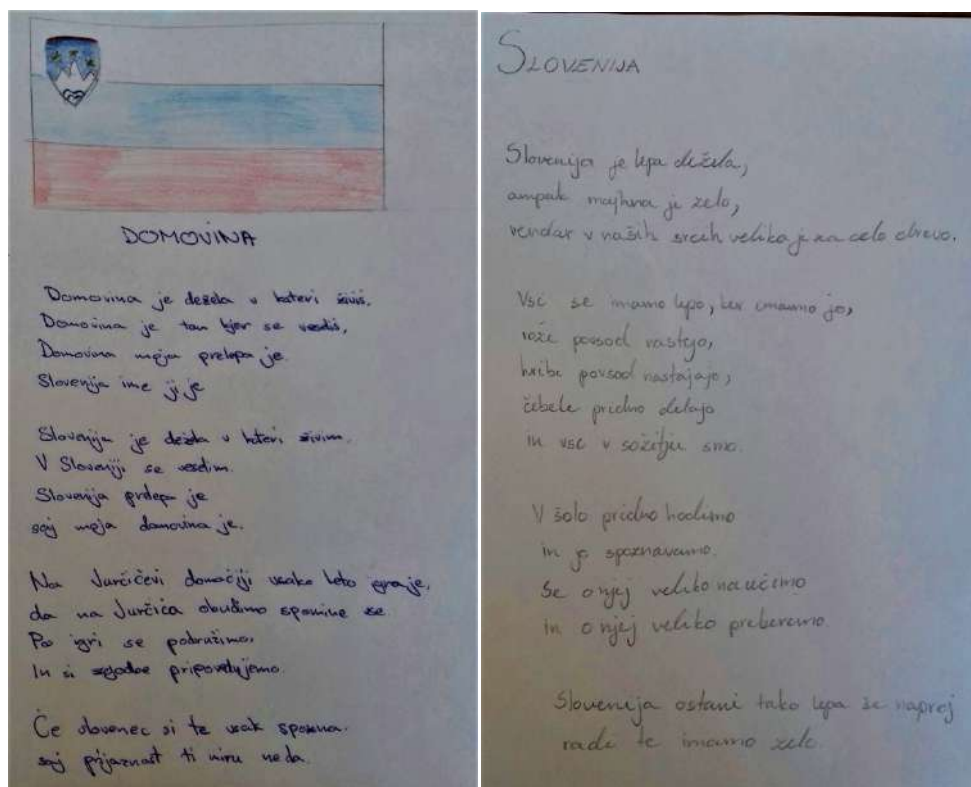 DOMOVINA
Domovina je dežela v kateri živiš.
Domovina je tam kjer se vesliš,
Domovina moja prelepa je.
Slovenija ime ji je
Slovenija je dežela v kateri živim.
V Sloveniji se veselim.
Slovenija prelepa je
saj moja domovina je.
Na Jurčičevi domačiji vsako leto igra je,
da na Jurčiča obudimo spomine se
Po igri se podružimo,
In si zgodbe pripovedujemo.
Če slovenec si te vsak spozna.
saj prijaznost ti miru neda.
SLOVENIJA
Slovenija je lepa dežela,
ampak majhna je zelo,
vendar v naših srcih velika je za celo drevo.
Vsi se imamo lepo, ker imamo jo,
rože povsod rastejo,
hribi povsod nastajajo,
čebele pridno delajo
in vsi v sožitju smo.
V šolo pridno hodimo
in jo spoznavamo.
Se o njej veliko naučimo
in o njej veliko preberemo.
Slovenija ostani tako lepa še naprej
radi te imamo zelo.